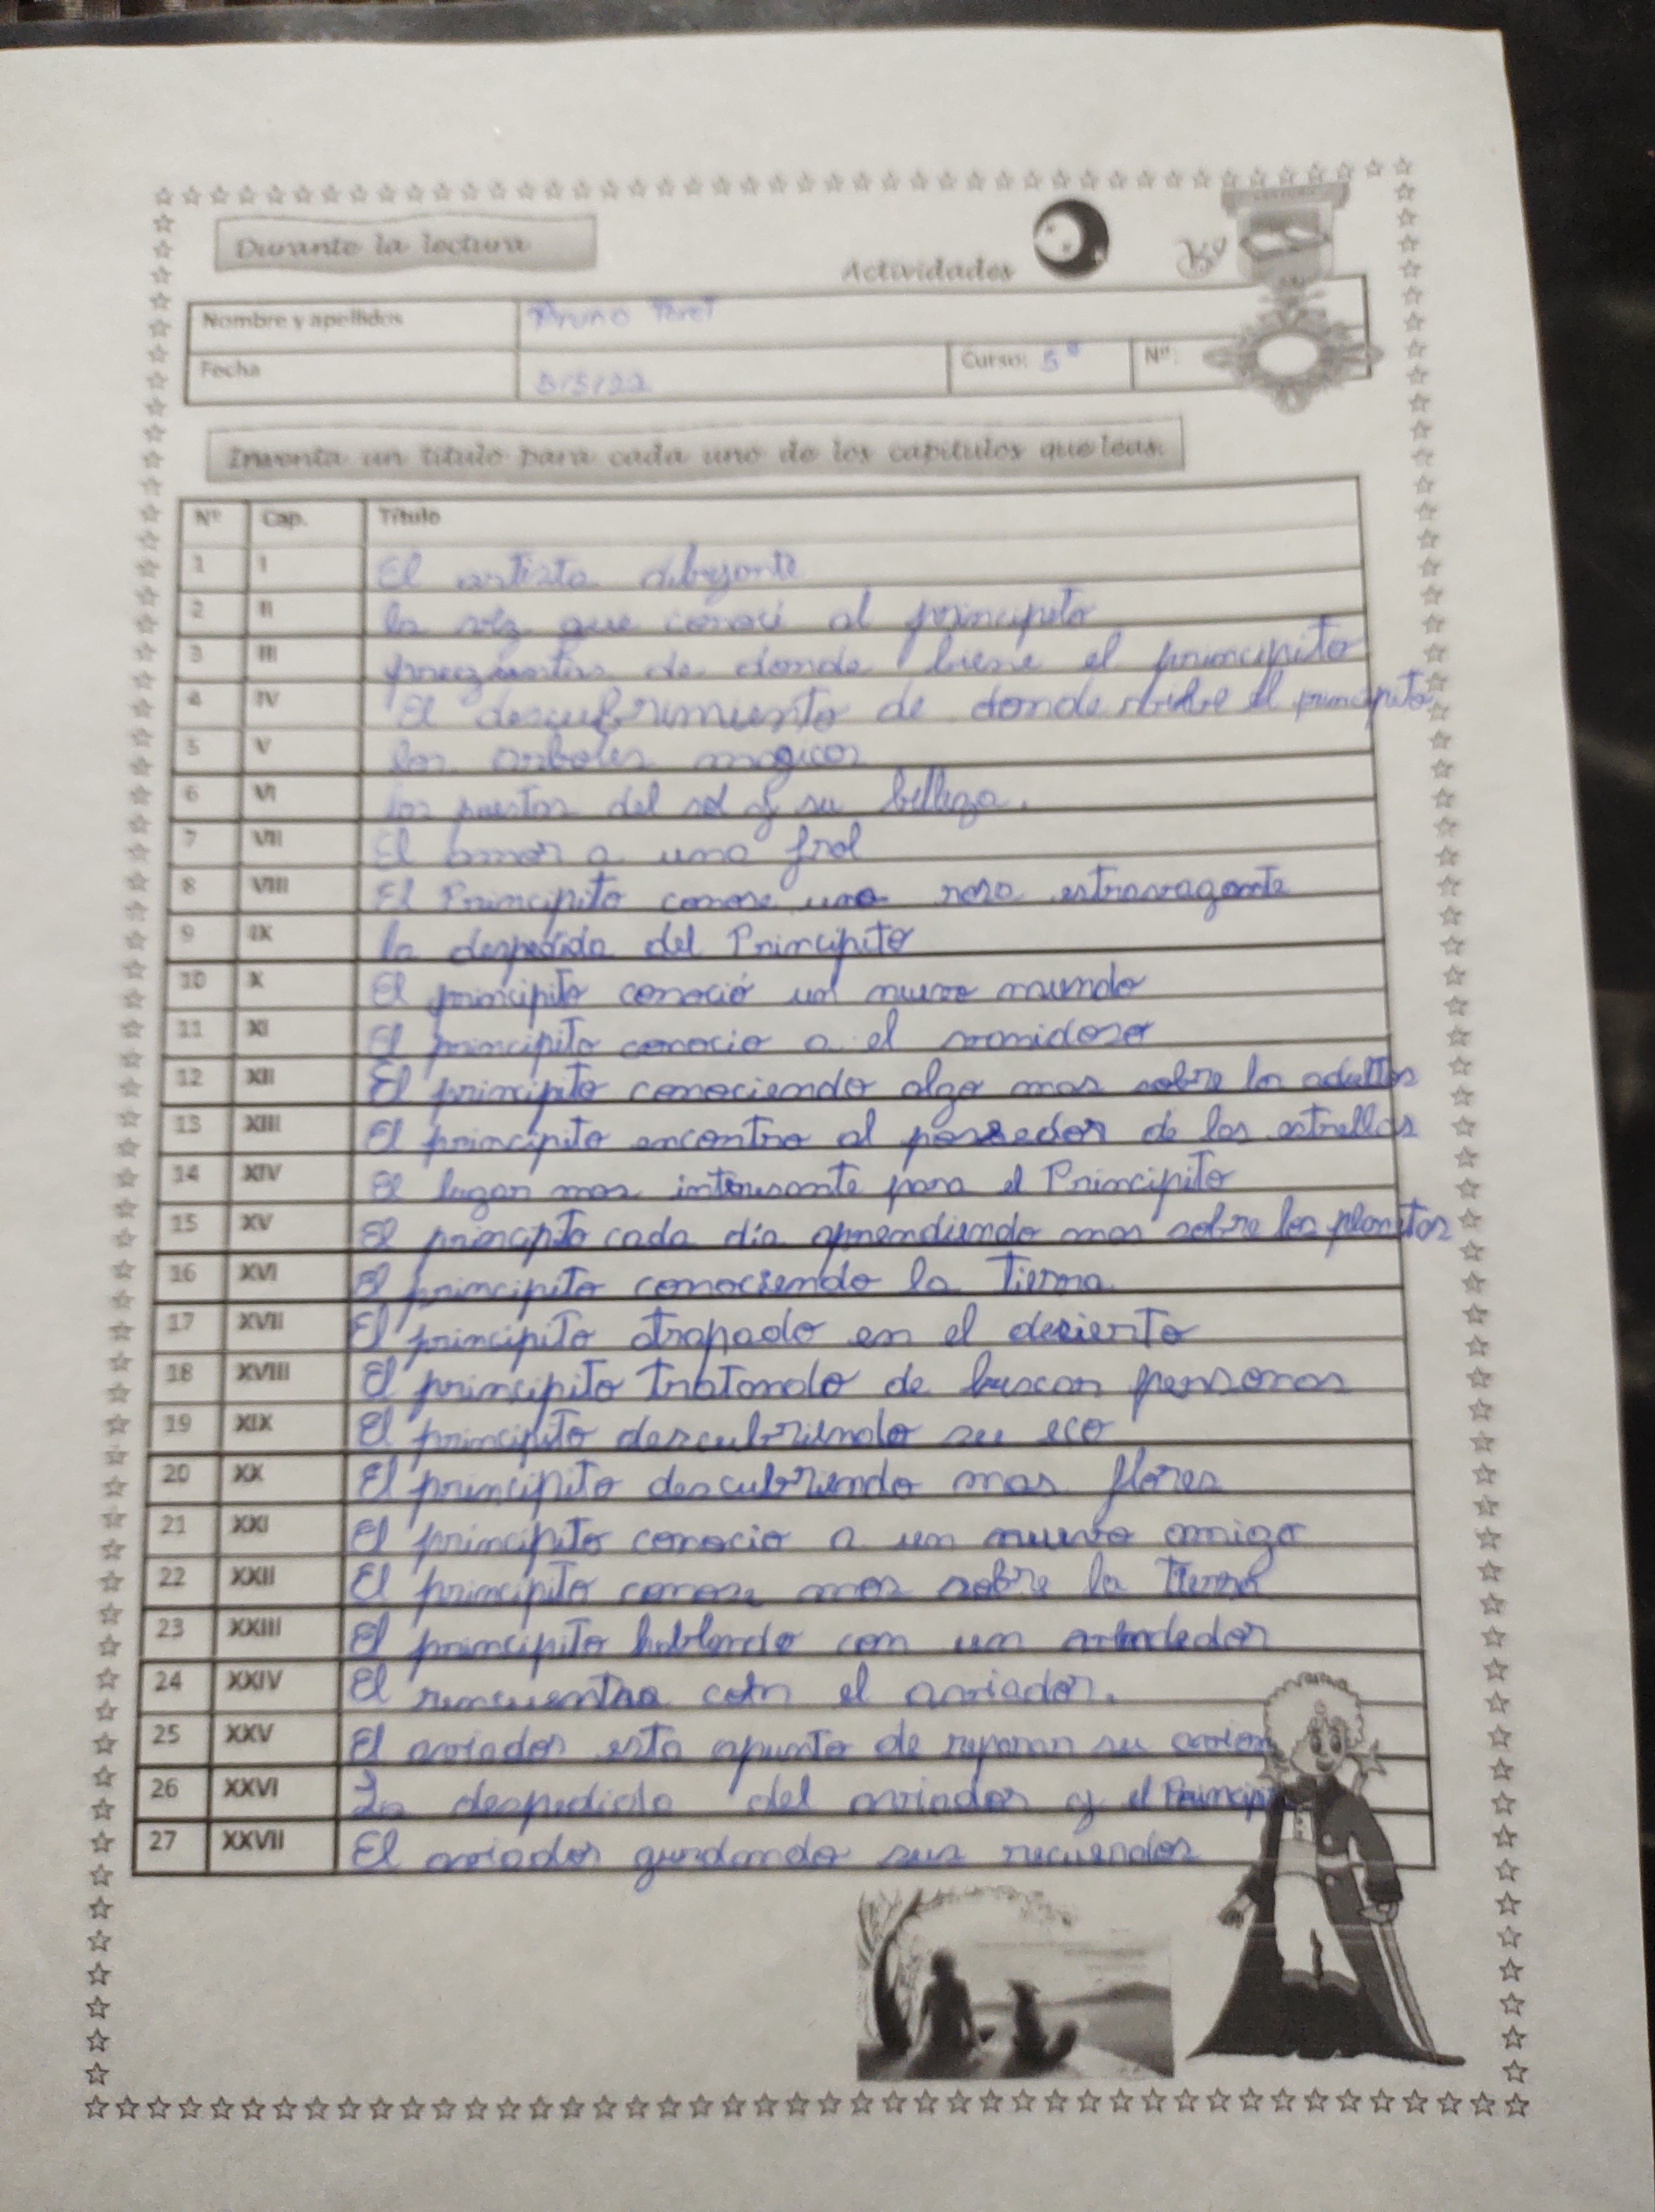 Durante la lectura
Actividades
Nombre y apellidos Bruno Peret
Fecha 5/5/22 Curso: 5º Nº:
Inventa un título para cada uno de los capítulos que leas.
Nº Cap. Título
1 I El artista dibujante
2 II la vez que conocí al principito
3 III preguntas de donde biene el principito
4 IV El descubrimiento de donde el principito
5 V los arboles magicos
6 VI las puestas del sol y su belleza.
7 VII El amor a una frol
8 VIII El Principito conose una rosa estravagante
9 IX la despedida del Principito
10 X El principito conoció un nuevo mundo
11 XI El principito conocio a el vanidoso
12 XII El principito conociendo algo mas sobre los adultos
13 XIII El principito encontro al poseedor de las estrellas
14 XIV El lugar mas interesante para el Principito
15 XV El principito cada día aprendiendo mas sobre los planetas
16 XVI El principito conociendo la Tierra
17 XVII El principito atrapado en el decierto
18 XVIII El principito tratando de buscar personas
19 XIX El principito descubriendo su eco
20 XX El principito descubriendo mas flores
21 XXI El principito conocio a un nuevo amigo
22 XXII El principito conose mas sobre la Tierra
23 XXIII El principito hablando con un
24 XXIV El rencuentro con el aviador.
25 XXV El aviador esta apunto de reparar su avion
26 XXVI La despedida del aviador y el Principito
27 XXVII El aviador gurdando sus recuerdos